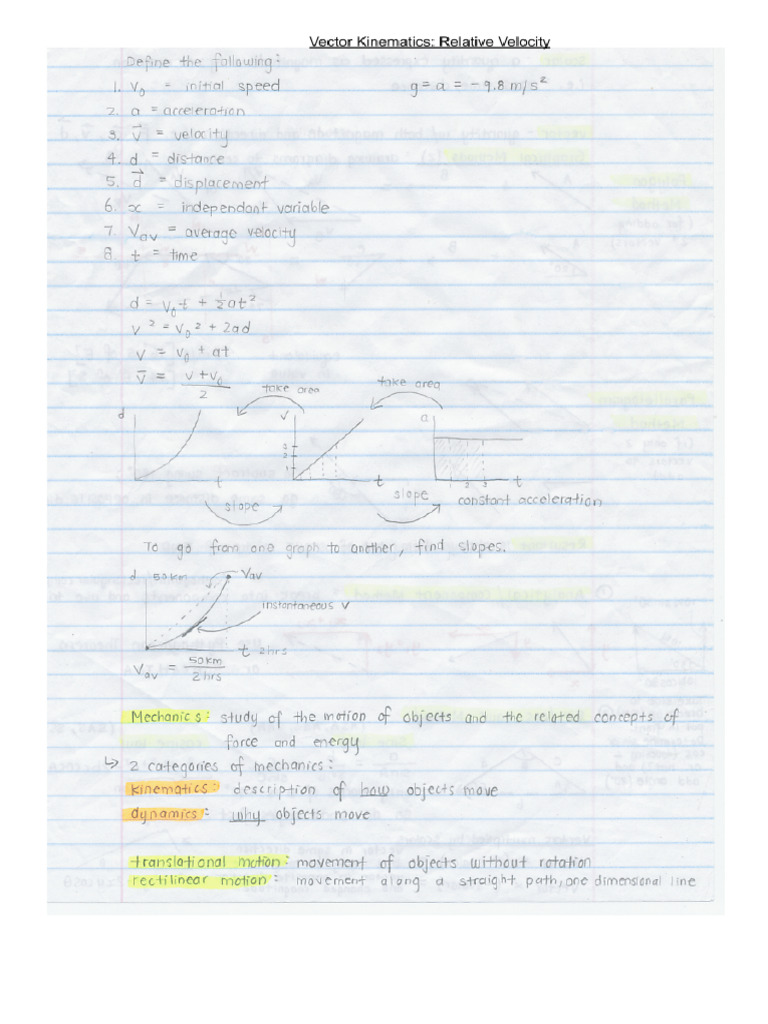 Vector Kinematics: Relative Velocity
Define the following:
1. V₀ = initial speed g = a = -9.8 m/s²
2. a = acceleration
3. v⃗ = velocity
4. d = distance
5. d⃗ = displacement
6. x = independant variable
7. Vav = average velocity
8. t = time
d = v₀t + ½at²
v² = v₀² + 2ad
v = v₀ + at
v̄ = v+v₀
2
take area take area
d v a
3
2
1
t t 1 2 3 t
slope slope constant acceleration
To go from one graph to another, find slopes.
d 50km Vav
instantaneous v
t 2hrs
Vav = 50km
2hrs
Mechanics: study of the motion of objects and the related concepts of
force and energy
↳ 2 categories of mechanics:
kinematics: description of how objects move
dynamics: why objects move
translational motion: movement of objects without rotation
rectilinear motion: movement along a straight path, one dimensional line